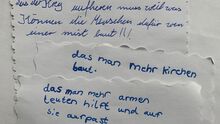 das der Krieg aufhören muss weil was
Können die Menschen dafür wen
einer mist baut!!!
das man mehr Kirchen
baut.
das man mehr armen
leuten hilft und auf
sie aufpasst